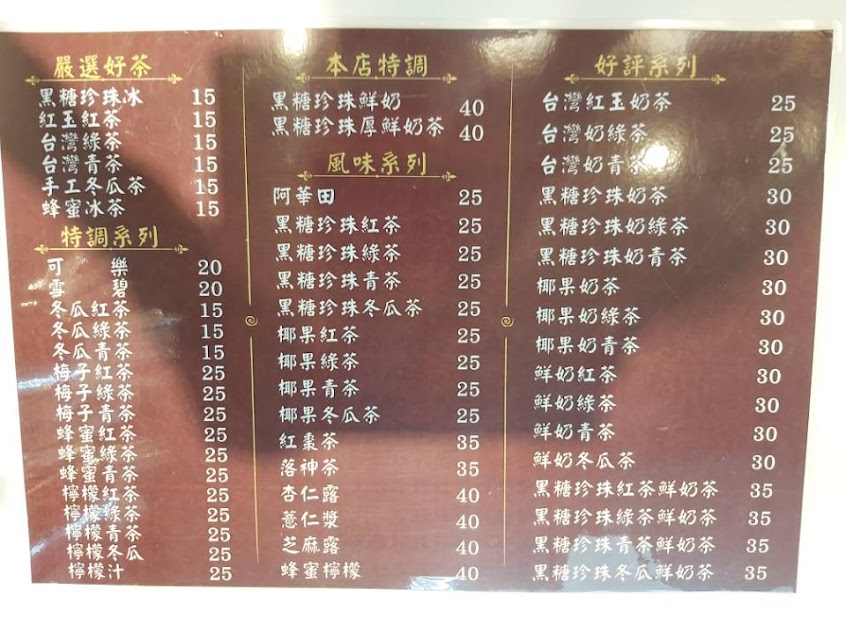 嚴選好茶
黑糖珍珠冰 15
紅玉紅茶 15
台灣綠茶 15
台灣青茶 15
手工冬瓜茶 15
蜂蜜冰茶 15
特調系列
可樂 20
雪碧 20
冬瓜紅茶 15
冬瓜綠茶 15
冬瓜青茶 15
梅子紅茶 25
梅子綠茶 25
梅子青茶 25
蜂蜜紅茶 25
蜂蜜綠茶 25
蜂蜜青茶 25
檸檬紅茶 25
檸檬綠茶 25
檸檬青茶 25
檸檬冬瓜 25
檸檬汁 25
本店特調
黑糖珍珠鮮奶 40
黑糖珍珠厚鮮奶茶 40
風味系列
阿華田 25
黑糖珍珠紅茶 25
黑糖珍珠綠茶 25
黑糖珍珠青茶 25
黑糖珍珠冬瓜茶 25
椰果紅茶 25
椰果綠茶 25
椰果青茶 25
椰果冬瓜茶 25
紅棗茶 35
落神茶 35
杏仁露 40
薏仁漿 40
芝麻露 40
蜂蜜檸檬 40
好評系列
台灣紅玉奶茶 25
台灣奶綠茶 25
台灣奶青茶 25
黑糖珍珠奶茶 30
黑糖珍珠奶綠茶 30
黑糖珍珠奶青茶 30
椰果奶茶 30
椰果奶綠茶 30
椰果奶青茶 30
鮮奶紅茶 30
鮮奶綠茶 30
鮮奶青茶 30
鮮奶冬瓜茶 30
黑糖珍珠紅茶鮮奶茶 35
黑糖珍珠綠茶鮮奶茶 35
黑糖珍珠青茶鮮奶茶 35
黑糖珍珠冬瓜鮮奶茶 35